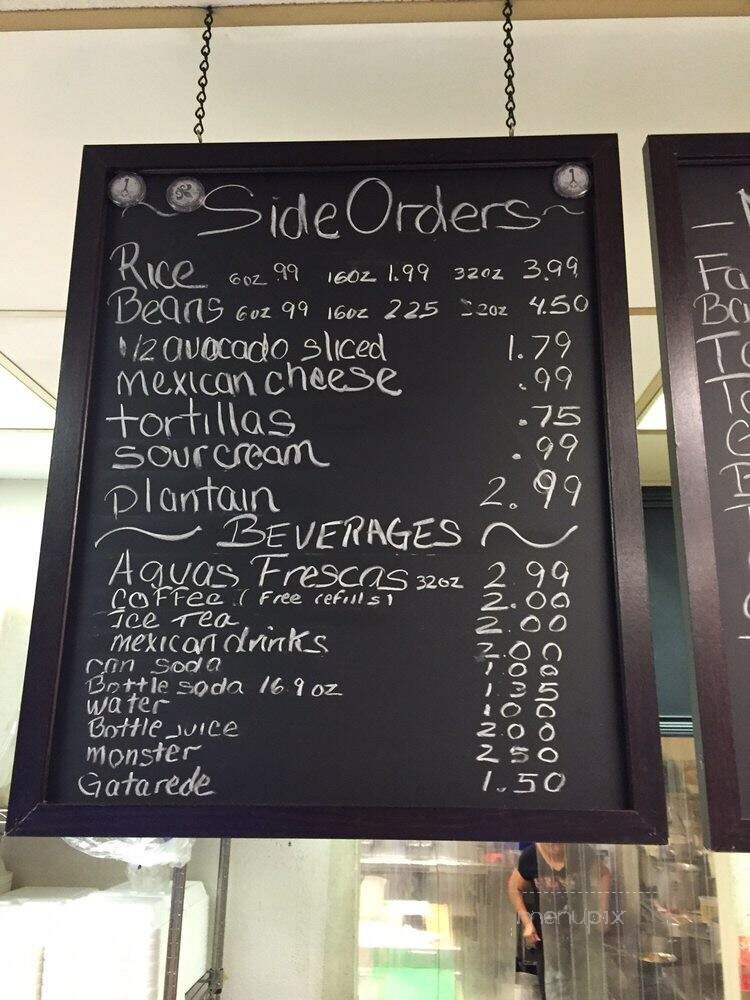 Side Orders
Rice 6oz .99 16oz 1.99 32oz 3.99
Beans 6oz 99 16oz 225 32oz 4.50
1/2 avocado sliced 1.79
mexican cheese .99
tortillas .75
sour cream .99
plantain 2.99
BEVERAGES
Aguas Frescas 32oz 2.99
COFFEE (Free refills) 2.00
Ice Tea 2.00
mexican drinks 2.00
can soda 1.00
Bottle soda 16.9 oz 1.35
water 100
Bottle juice 200
monster 250
Gatarede 1.50
menupix